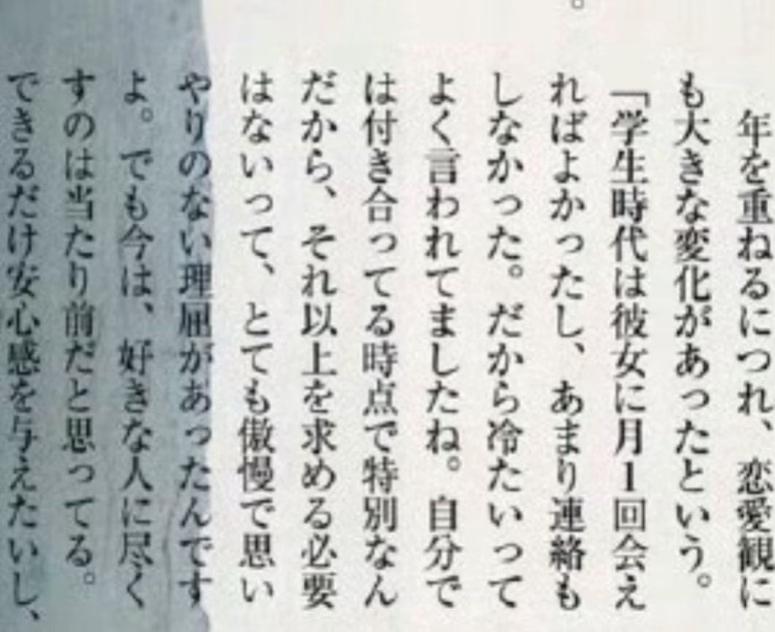 年を重ねるにつれ、恋愛観に
も大きな変化があったという。
「学生時代は彼女に月1回会え
ればよかったし、あまり連絡も
しなかった。だから冷たいって
よく言われてましたね。自分で
は付き合ってる時点で特別なん
だから、それ以上を求める必要
はないって、とても傲慢で思い
やりのない理屈があったんです
よ。でも今は、好きな人に尽く
すのは当たり前だと思ってる。
できるだけ安心感を与えたいし、